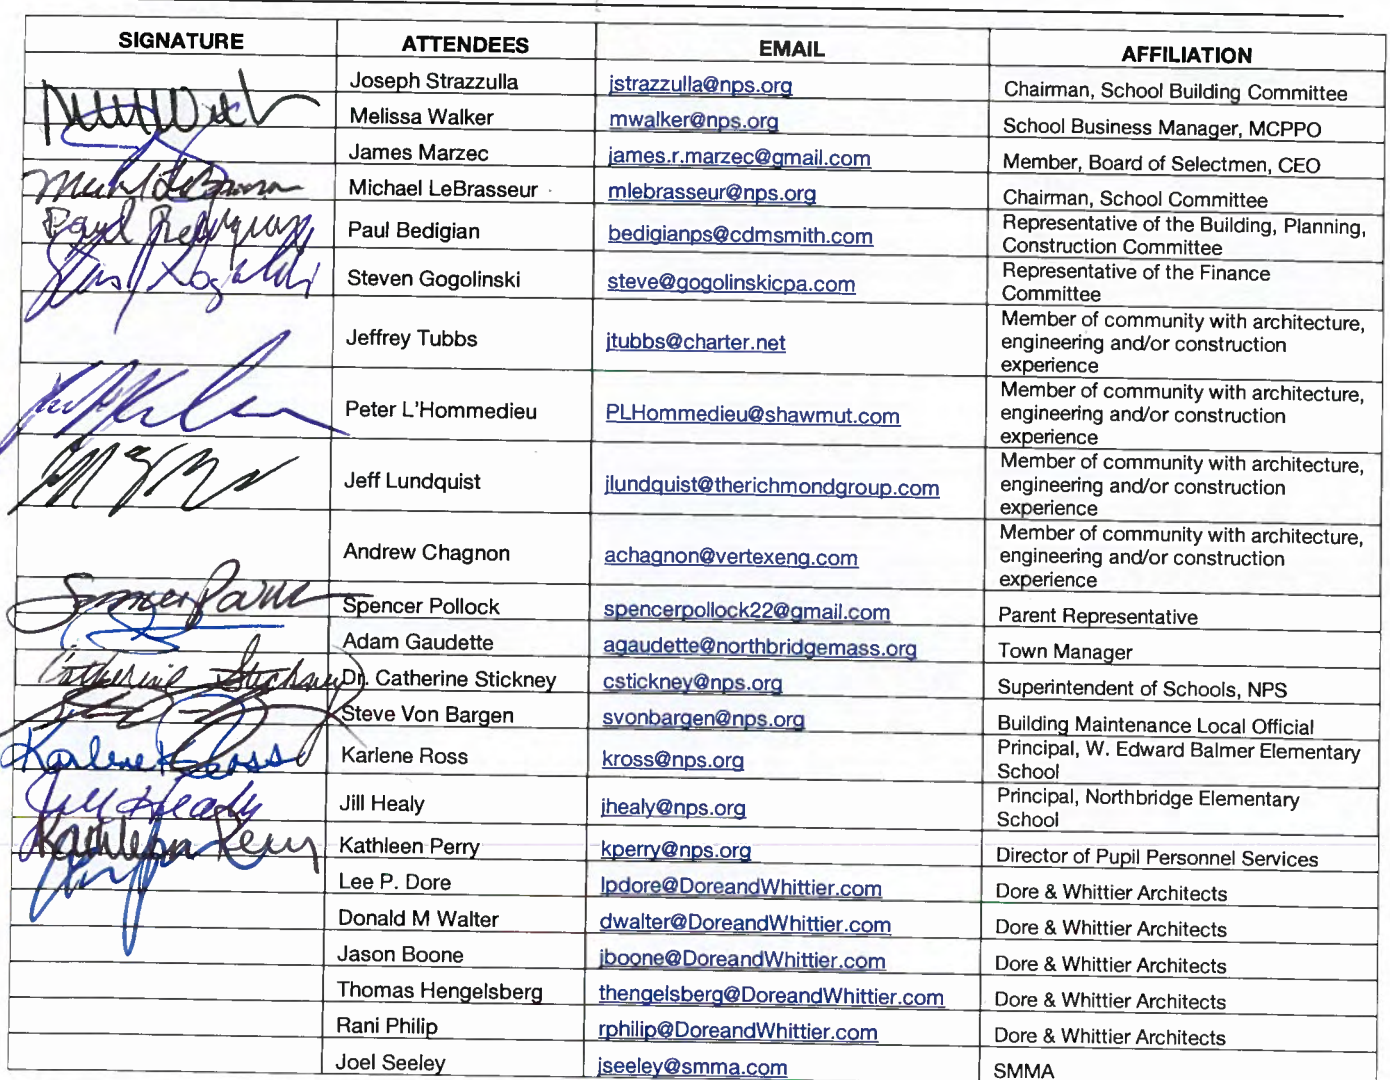 SIGNATURE ATTENDEES EMAIL AFFILIATION
Joseph Strazzulla jstrazzulla@nps.org Chairman, School Building Committee
Melissa Walker mwalker@nps.org School Business Manager, MCPPO
James Marzec james.r.marzec@gmail.com Member, Board of Selectmen, CEO
Michael LeBrasseur mlebrasseur@nps.org Chairman, School Committee
Paul Bedigian bedigianps@cdmsmith.com Representative of the Building, Planning,
Construction Committee
Steven Gogolinski steve@gogolinskicpa.com Representative of the Finance
Committee
Jeffrey Tubbs jtubbs@charter.net Member of community with architecture,
engineering and/or construction
experience
Peter L'Hommedieu PLHommedieu@shawmut.com Member of community with architecture,
engineering and/or construction
experience
Jeff Lundquist jlundquist@therichmondgroup.com Member of community with architecture,
engineering and/or construction
experience
Andrew Chagnon achagnon@vertexeng.com Member of community with architecture,
engineering and/or construction
experience
Spencer Pollock spencerpollock22@gmail.com Parent Representative
Adam Gaudette agaudette@northbridgemass.org Town Manager
Catherine Stickney Dr. Catherine Stickney cstickney@nps.org Superintendent of Schools, NPS
Steve Von Bargen svonbargen@nps.org Building Maintenance Local Official
Karlene K Ross Karlene Ross kross@nps.org Principal, W. Edward Balmer Elementary
School
Jill Healy Jill Healy jhealy@nps.org Principal, Northbridge Elementary
School
Kathleen Perry Kathleen Perry kperry@nps.org Director of Pupil Personnel Services
Lee P. Dore lpdore@DoreandWhittier.com Dore & Whittier Architects
Donald M Walter dwalter@DoreandWhittier.com Dore & Whittier Architects
Jason Boone jboone@DoreandWhittier.com Dore & Whittier Architects
Thomas Hengelsberg thengelsberg@DoreandWhittier.com Dore & Whittier Architects
Rani Philip rphilip@DoreandWhittier.com Dore & Whittier Architects
Joel Seeley jseeley@smma.com SMMA